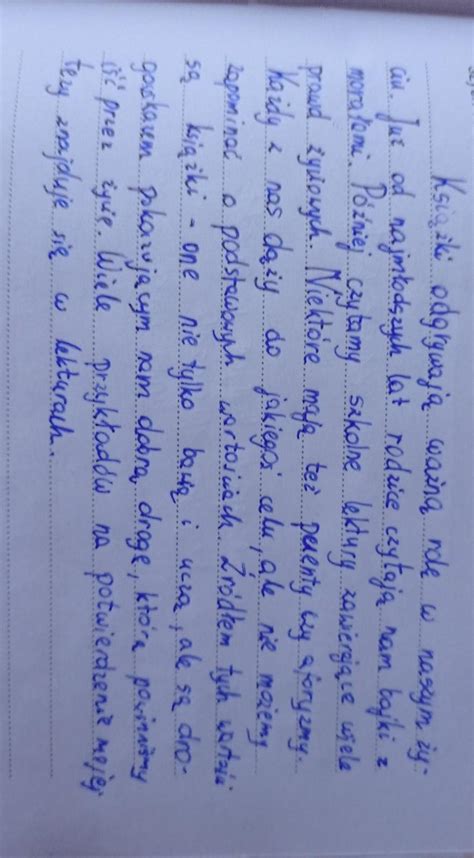 Książki odgrywają ważną rolę w naszym ży-
ciu. Już od najmłodszych lat rodzice czytają nam bajki z
morałami. Później czytamy szkolne lektury zawierające wiele
prawd życiowych. Niektóre mają też puenty czy aforyzmy.
Każdy z nas dąży do jakiegoś celu, ale nie możemy
zapominać o podstawowych wartościach. Źródłem tych wartości
są książki - one nie tylko bawią i uczą, ale są dro-
goskazem pokazującym nam dobrą drogę, którą powinniśmy
iść przez życie. Wiele przykładów na potwierdzenie mojej
tezy znajduje się w lekturach.